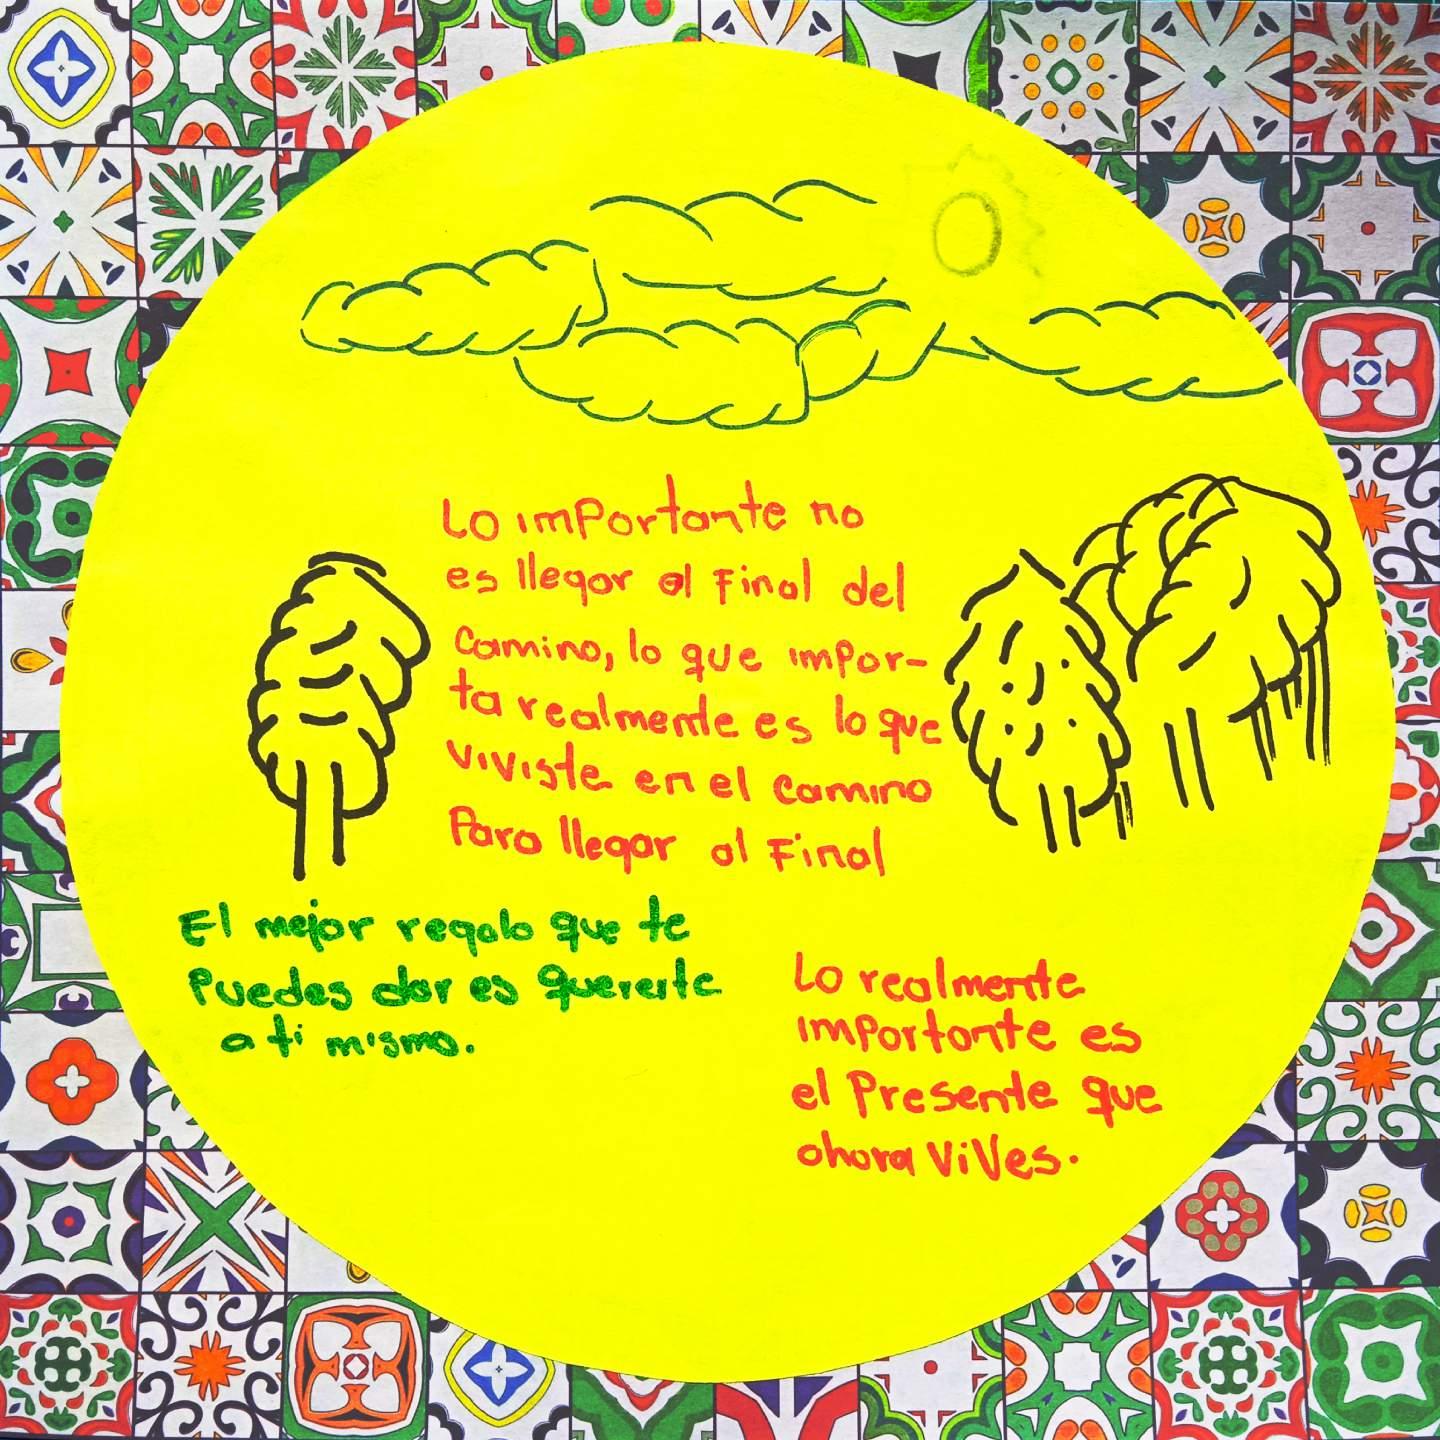 Lo importante no
es llegar al Final del
Camino, lo que impor-
ta realmente es lo que
viviste en el camino
Para llegar al Final
El mejor regalo que te
Puedes dar es quererte
a ti mismo.
Lo realmente
importante es
el Presente que
ahora vives.